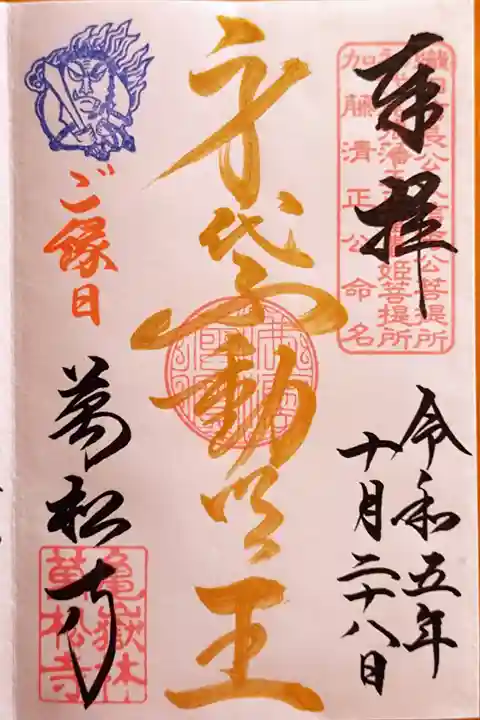 奉拝
長公
公菩提所
姫菩提所
加藤清正公命名
令和五年
十月二十八日
身代不動明王
ご縁日
萬松寺
亀嶽林
萬松寺